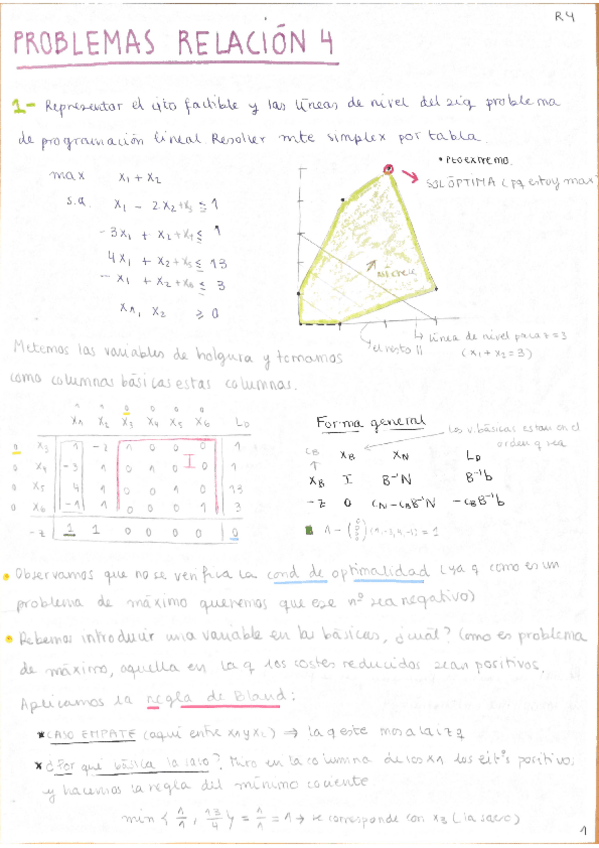 R4
PROBLEMAS RELACIÓN 4
1- Representar el cjto factible y las líneas de nivel del sig problema
de programación lineal. Resolver mte simplex por tabla.
max x1 + x2
s.a. x1 - 2x2 +x3 ≤ 1
-3x1 + x2 +x4 ≤ 1
4x1 + x2 +x5 ≤ 13
-x1 + x2 +x6 ≤ 3
x1, x2 ≥ 0
• Pto EXTREMO
SOL ÓPTIMA (pq estoy max)
línea de nivel para z=3
(x1+x2=3)
el resto ||
Metemos las variables de holgura y tomamos
como columnas básicas estas columnas.
1 1 0 0 0 0
x1 x2 x3 x4 x5 x6 LD
0 x3 1 -2 1 0 0 0 1
0 x4 -3 1 0 1 0 0 1
0 x5 4 1 0 0 1 0 13
0 x6 -1 1 0 0 0 1 3
-z 1 1 0 0 0 0 0
I
Forma general
Las v. básicas están en el
orden q sea
CB xB xN LD
xB I B⁻¹N B⁻¹b
-z 0 CN-CBB⁻¹N -CBB⁻¹b
• Observamos que no se verifica la cond de optimalidad (ya q como es un
problema de máximo queremos que ese nº sea negativo)
• Debemos introducir una variable en las básicas, ¿cuál? Como es problema
de máximo, aquella en la q los costes reducidos sean positivos.
Aplicamos la regla de Bland:
* CASO EMPATE (aquí entre x1 y x2) ⇒ la q esté mas a la izq
* ¿Por qué básica la saco? Miro en la columna de los x1 los elt^os positivos
y hacemos la regla del mínimo cociente.
min { 1/1, 13/4 } = 1/1 = 1 → se corresponde con x3 (la saco)
1